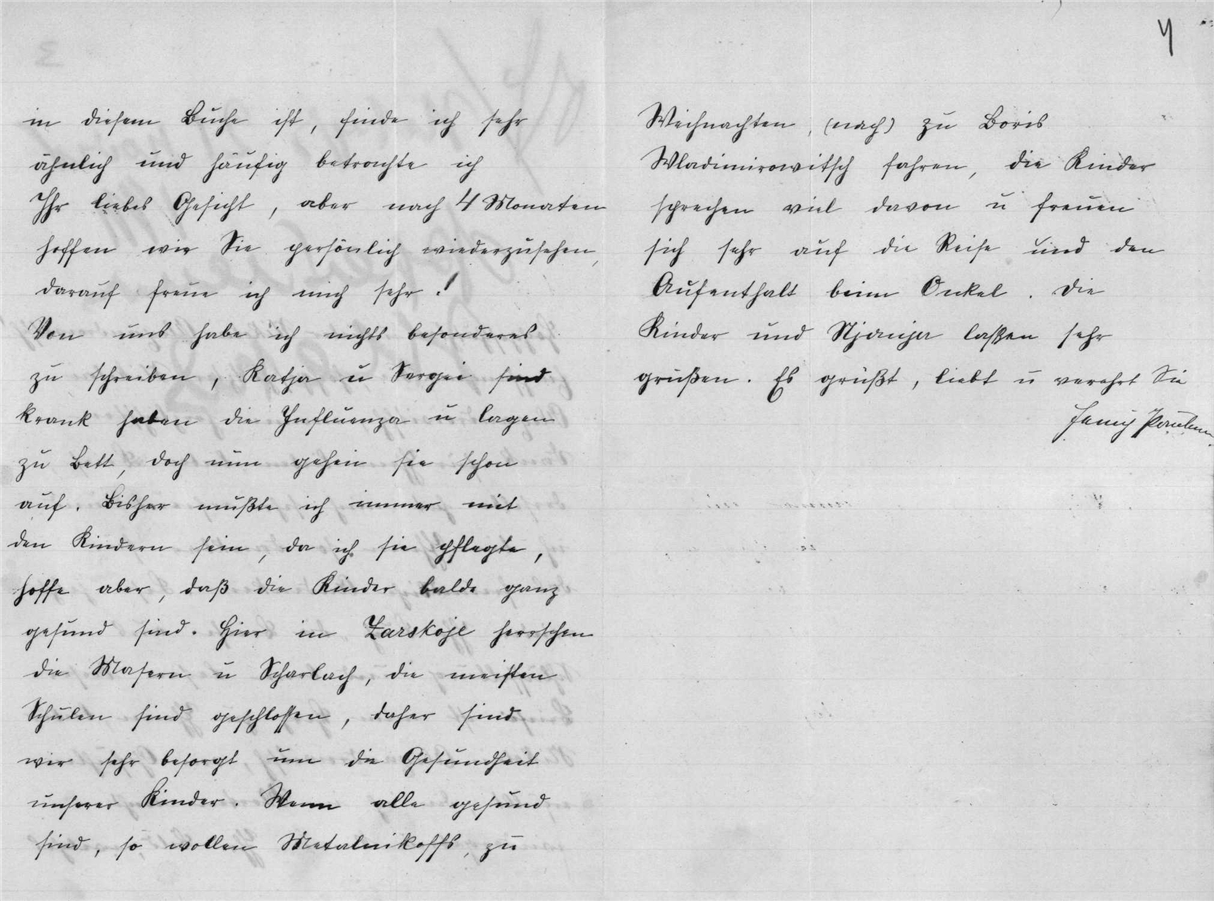 in diesem Buche ist, finde ich sehr
ähnlich und häufig betrachte ich
Ihr liebes Gesicht, aber nach 4 Monaten
hoffen wir Sie persönlich wiederzusehen,
darauf freue ich mich sehr!
Von uns habe ich nichts besonderes
zu schreiben, Katja u Sergei sind
krank haben die Influenza u lagen
zu Bett, doch nun gehen sie schon
auf. Bisher mußte ich immer mit
den Kindern sein, da ich sie pflegte,
hoffe aber, daß die Kinder balde ganz
gesund sind. Hier in Zarskoje herrschen
die Masern u Scharlach, die meisten
Schulen sind geschlossen, daher sind
wir sehr besorgt um die Gesundheit
unserer Kinder. Wenn alle gesund
sind, so wollen Metalnikoffs, zu
4
Weihnachten, (nach) zu Boris
Wladimirowitsch fahren, die Kinder
sprechen viel davon u freuen
sich sehr auf die Reise und den
Aufenthalt beim Onkel. Die
Kinder und Njanja laßen sehr
grüßen. Es grüßt, liebt u verehrt Sie